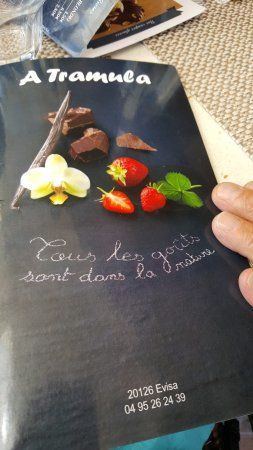 A Tramula
Tous les goûts
sont dans la nature
20126 Evisa
04 95 26 24 39